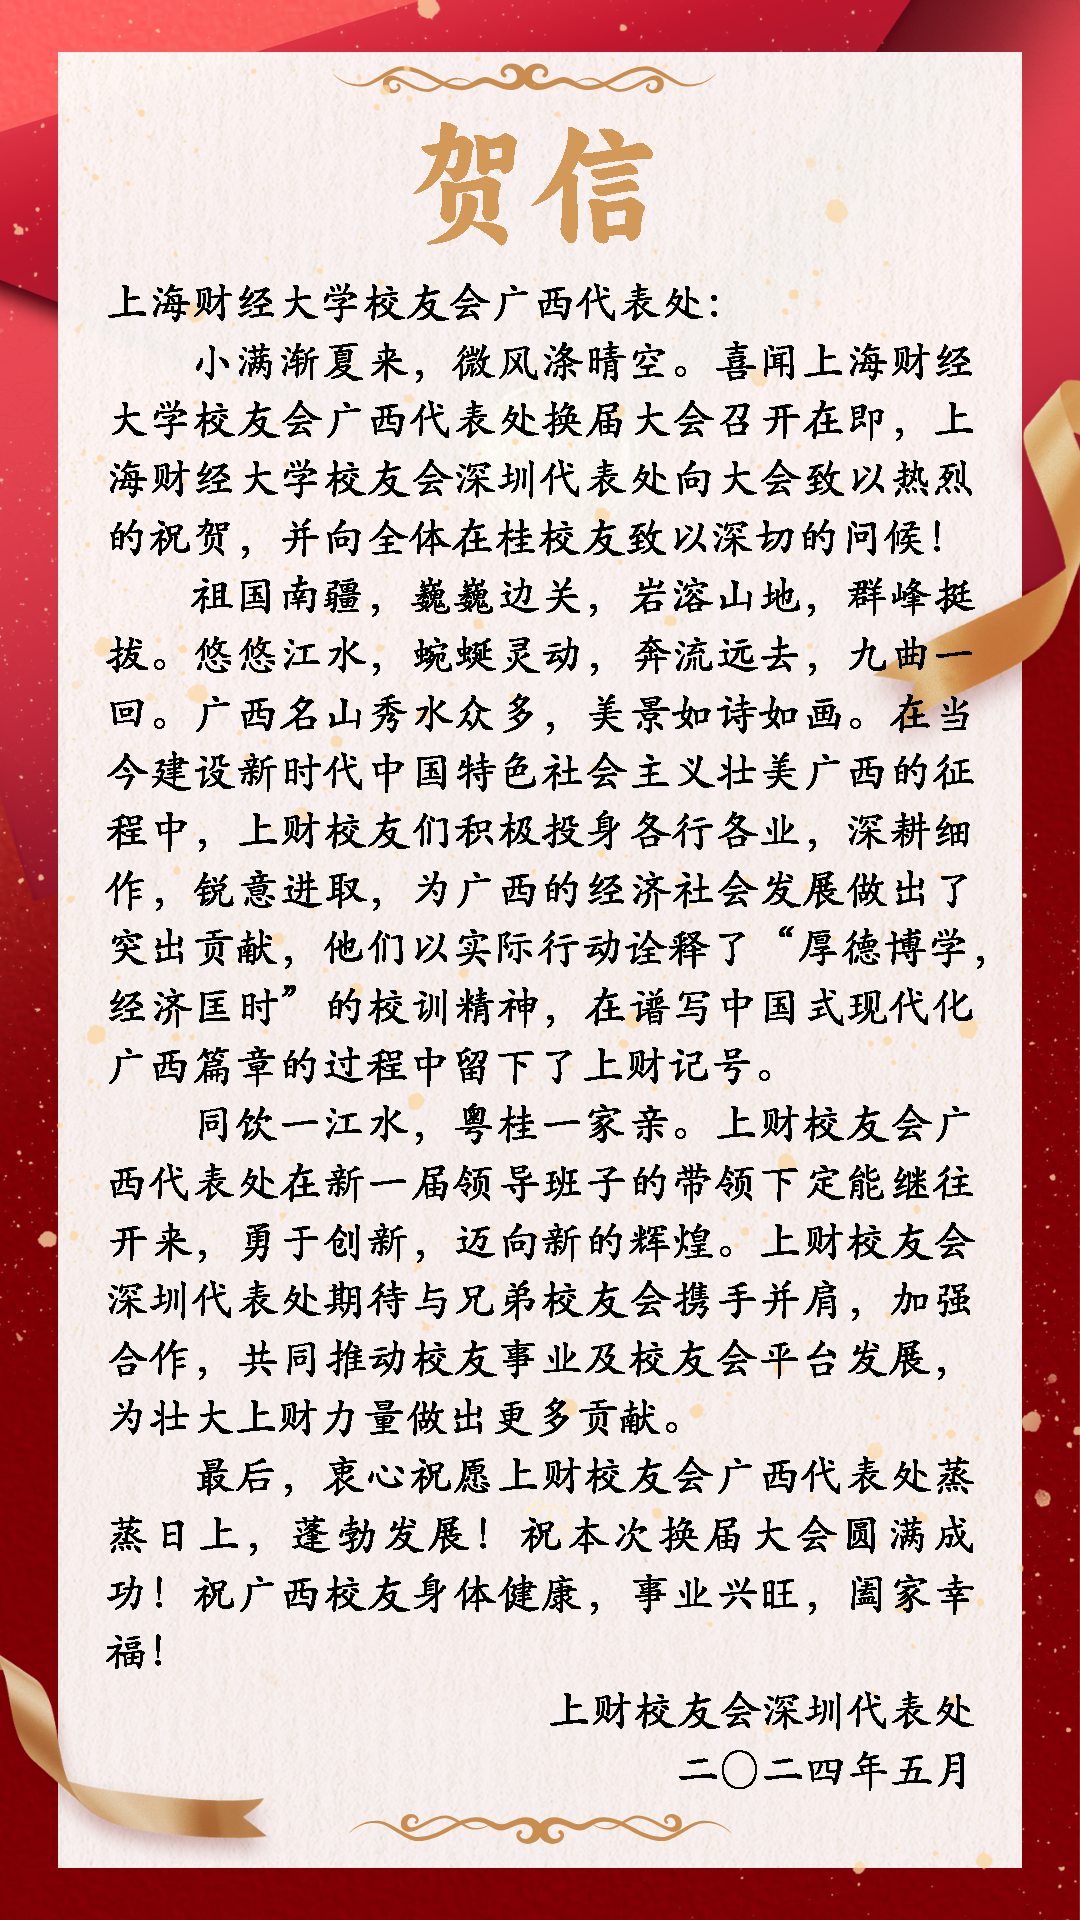 贺信
上海财经大学校友会广西代表处：
小满渐夏来，微风涤晴空。喜闻上海财经
大学校友会广西代表处换届大会召开在即，上
海财经大学校友会深圳代表处向大会致以热烈
的祝贺，并向全体在桂校友致以深切的问候！
祖国南疆，巍巍边关，岩溶山地，群峰挺
拔。悠悠江水，蜿蜒灵动，奔流远去，九曲一
回。广西名山秀水众多，美景如诗如画。在当
今建设新时代中国特色社会主义壮美广西的征
程中，上财校友们积极投身各行各业，深耕细
作，锐意进取，为广西的经济社会发展做出了
突出贡献，他们以实际行动诠释了“厚德博学，
经济匡时”的校训精神，在谱写中国式现代化
广西篇章的过程中留下了上财记号。
同饮一江水，粤桂一家亲。上财校友会广
西代表处在新一届领导班子的带领下定能继往
开来，勇于创新，迈向新的辉煌。上财校友会
深圳代表处期待与兄弟校友会携手并肩，加强
合作，共同推动校友事业及校友会平台发展，
为壮大上财力量做出更多贡献。
最后，衷心祝愿上财校友会广西代表处蒸
蒸日上，蓬勃发展！祝本次换届大会圆满成
功！祝广西校友身体健康，事业兴旺，阖家幸
福！
上财校友会深圳代表处
二〇二四年五月